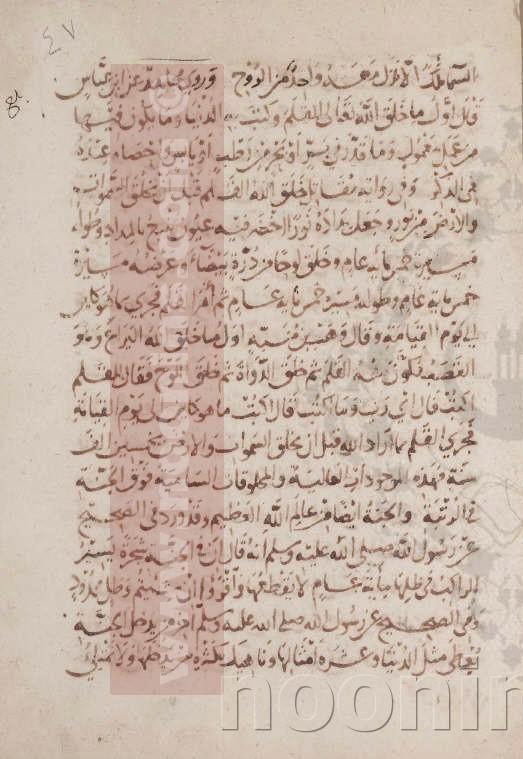 ٤٧
السماء ملكا الا نزل معه واحد من الروح وروى مجاهد عن ابن عباس
قال اول ما خلق الله تعالى القلم وكتب به الدنيا وما يكون فيها
من عمل معمول وما قدر فيه من رطب او يابس واحصاه عنده
في الذكر وفي رواية مقاتل خلق الله القلم قبل ان يخلق السموات
والارض من نور وجعل مداده نورا اخضر فيه عيون
خمس مايه عام وخلق لوحا من درة بيضاء وعرضه مسيرة
خمس مايه عام وطوله مسيرة خمس ماية عام ثم امر القلم فجرى بما هو كاين
الى يوم القيامة وقال وهب بن منبه اول ما خلق الله اليراع وهو
القصب فكون منه القلم ثم خلق الدواة ثم خلق اللوح فقال للقلم
اكتب قال اي رب وما اكتب قال اكتب ما هو كاين الى يوم القيامة
فجرى القلم بما اراد الله قبل ان يخلق السموات والارض بخمسين الف
سنة فهذه الموجودات العالية والمخلوقات السامية فوق الجنة
في الرتبة والجنة ايضا من عالم الله العظيم وقد ورد في الصحيح
عن رسول الله صلى الله عليه وسلم انه قال ان في الجنة شجرة يسير
الراكب في ظلها مائة عام لا يقطعها واقروا ان شئتم وظل ممدود
وفي الصحيح عن رسول الله صلى الله عليه وسلم اخر من يدخل الجنة
يعطى مثل الدنيا وعشرة امثالها وناهيك بكثرة من يدخلها ولا تمتلي
www.
noonin